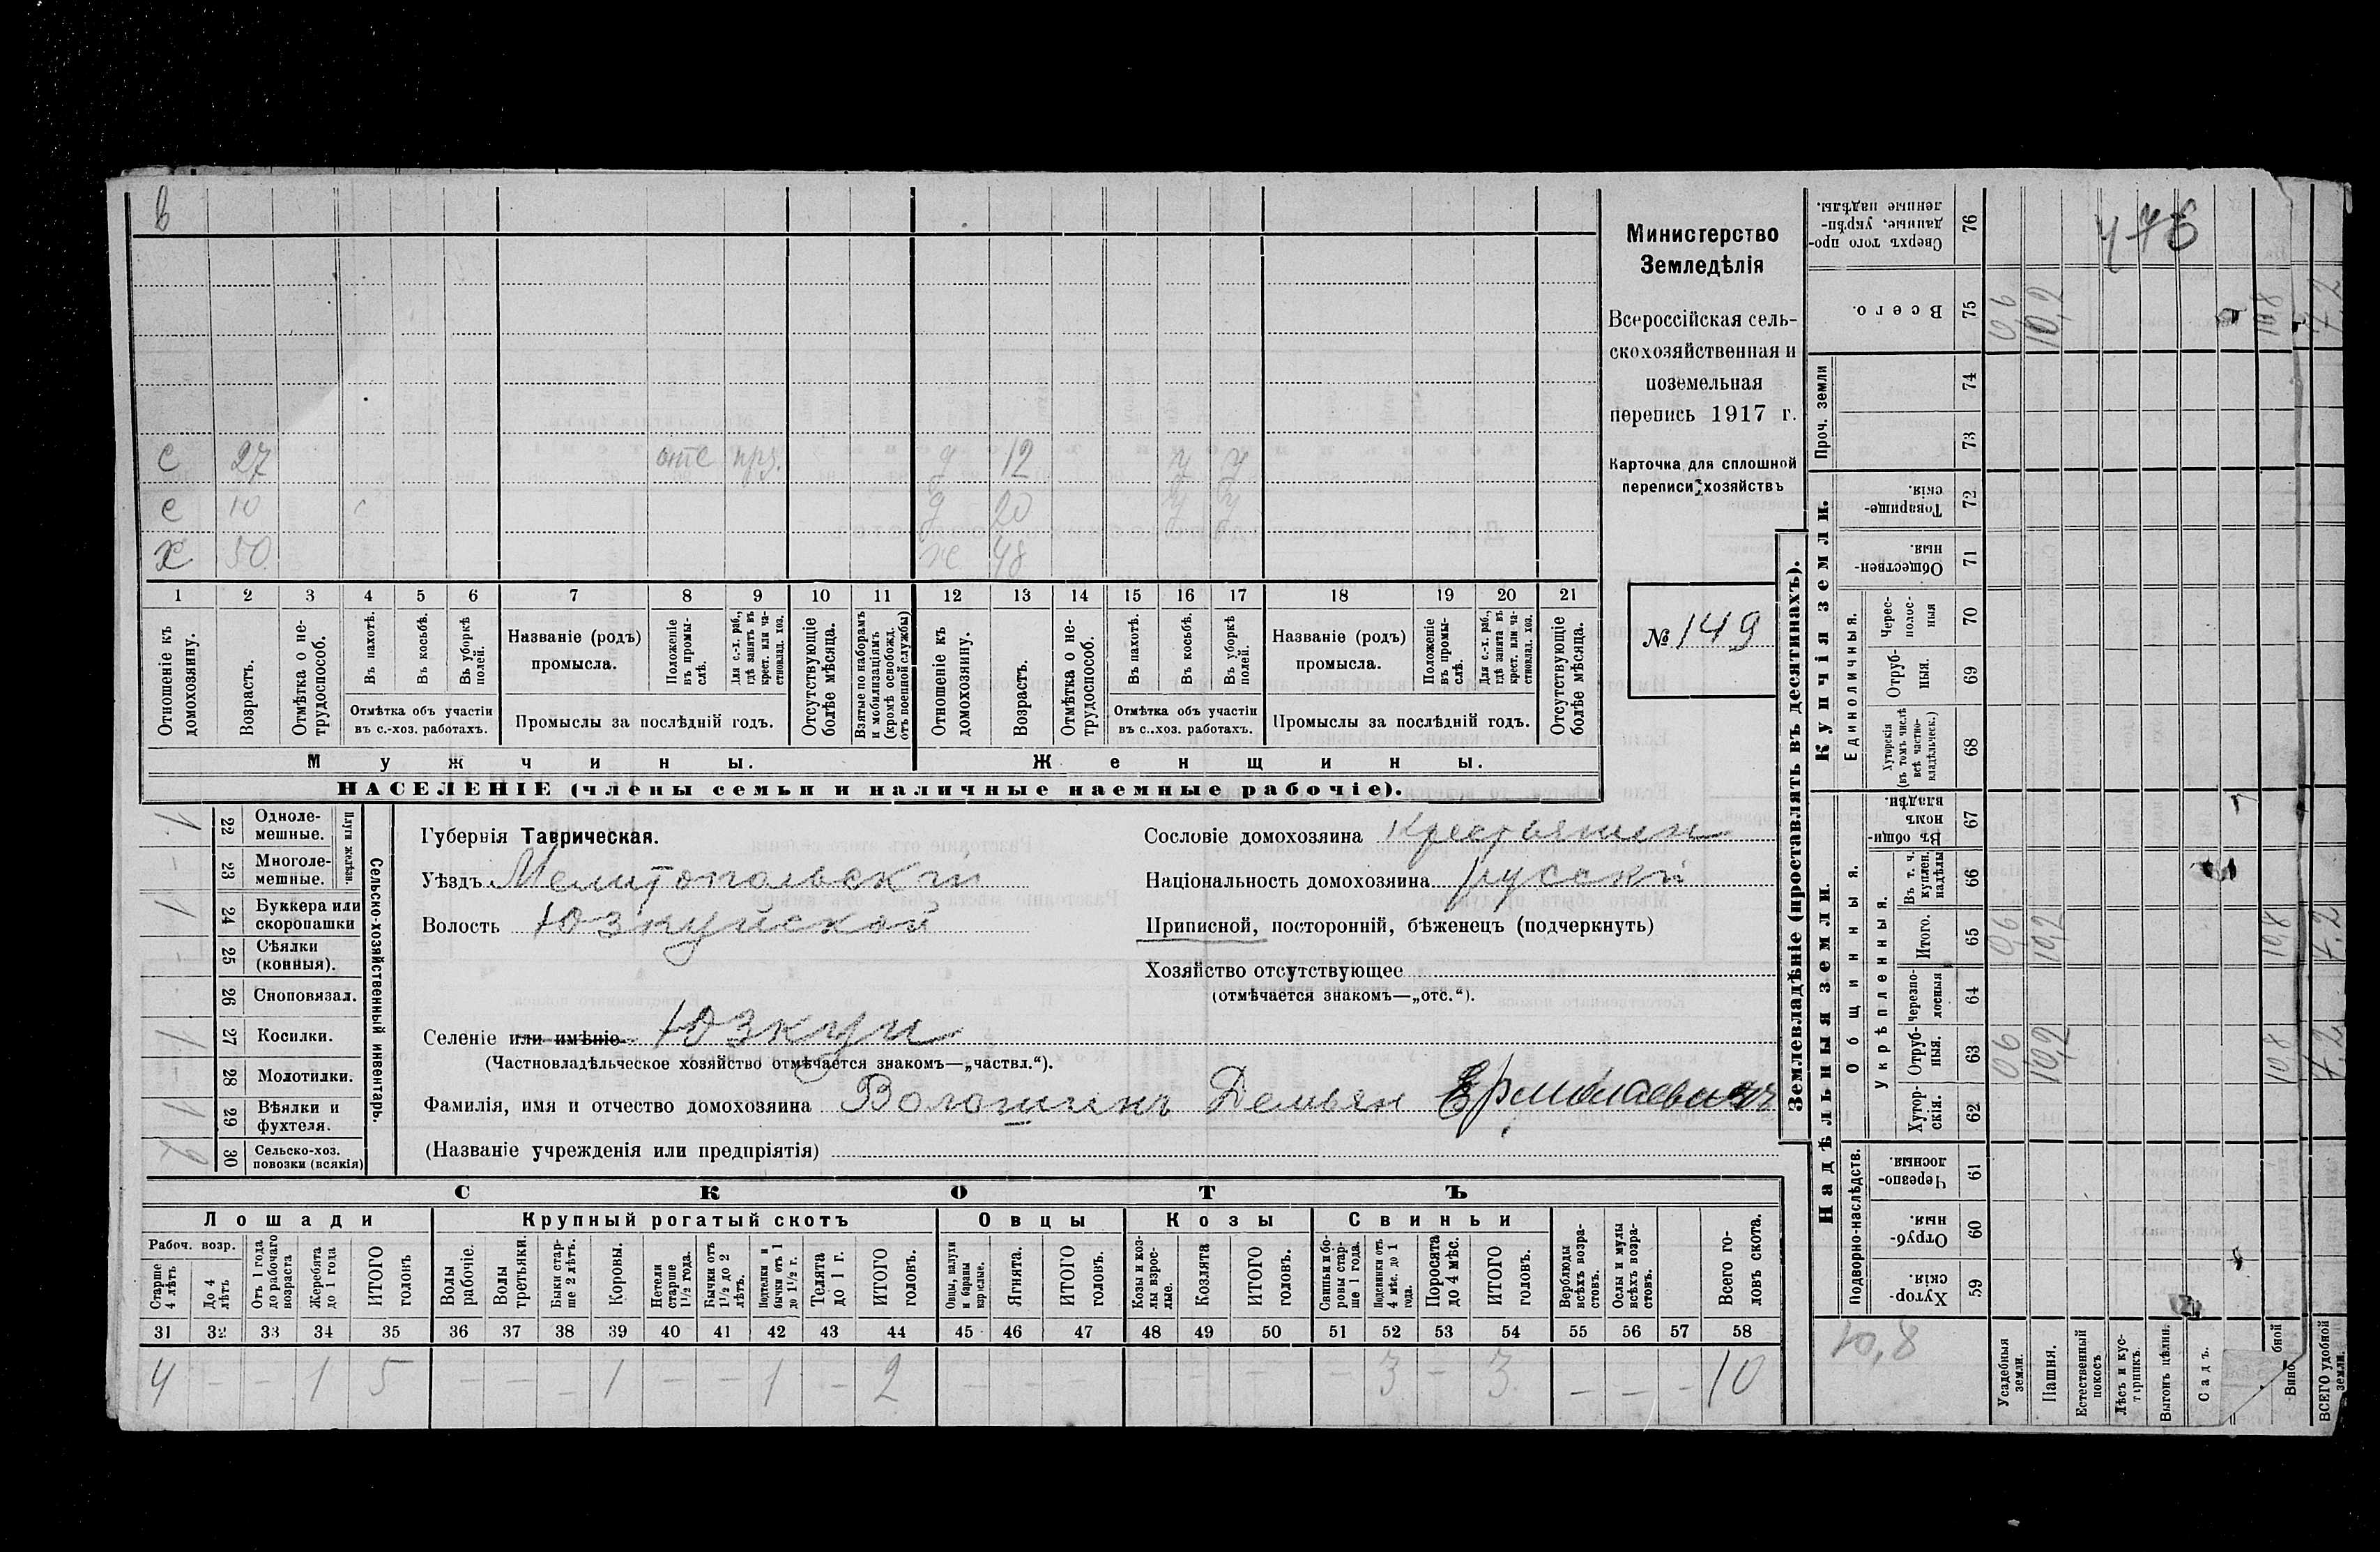 в
с 27 отс прд. д 12 у у
с 10 д 20 у у
х 50 ж 48
1 2 3 4 5 6 7 8 9 10 11 12 13 14 15 16 17 18 19 20 21
Отношеніе къ домохозяину.
Возрастъ.
Отмѣтка о не-трудоспособ.
Въ пахотѣ.
Въ косьбѣ.
Въ уборкѣ полей.
Отмѣтка объ участіи
въ с.-хоз. работахъ.
Названіе (родъ)
промысла.
Положеніе въ промы-слѣ.
Для с.-х. раб., гдѣ занятъ въ крест. или ча-стновлад. хоз.
Промыслы за послѣдній годъ.
Отсутствующіе болѣе мѣсяца.
Взятые по наборамъ и мобилизаціямъ (кромѣ освобожд. отъ военной службы)
Отношеніе къ домохозяину.
Возрастъ.
Отмѣтка о не-трудоспособ.
Въ пахотѣ.
Въ косьбѣ.
Въ уборкѣ полей.
Отмѣтка объ участіи
въ с.-хоз. работахъ.
Названіе (родъ)
промысла.
Положеніе въ промы-слѣ.
Для с.-х. раб., гдѣ занята въ крест. или ча-стновлад. хоз.
Промыслы за послѣдній годъ.
Отсутствующіе болѣе мѣсяца.
Мужчины. Женщины.
НАСЕЛЕНІЕ (члены семьи и наличные наемные рабочіе).
Министерство
Земледѣлія
Всероссійская сель-
скохозяйственная и
поземельная
перепись 1917 г.
Карточка для сплошной
переписи хозяйствъ
№ 149
1 22 Одноле-мешные.
- 23 Многоле-мешные.
Плуги желѣзн.
1 24 Буккера или скоропашки
- 25 Сѣялки (конныя).
26 Сноповязал.
1 27 Косилки.
- 28 Молотилки.
1 29 Вѣялки и фухтеля.
2 30 Сельско-хоз. повозки (всякія)
Сельско-хозяйственный инвентарь.
Губернія Таврическая.
Уѣздъ Мелитопольскій
Волость Юзкуйской
Селеніе или имѣніе Юзкуи
(Частновладѣльческое хозяйство отмѣчается знакомъ—„частвл.“).
Фамилія, имя и отчество домохозяина Волошинъ Демьян Ермолаевичъ
(Названіе учрежденія или предпріятія)
Сословіе домохозяина Крестьянин
Національность домохозяина русскій
Приписной, посторонній, бѣженецъ (подчеркнуть)
Хозяйство отсутствующее
(отмѣчается знакомъ—„отс.“).
СКОТЪ
Лошади Крупный рогатый скотъ Овцы Козы Свиньи
Рабоч. возр.
Старше 4 лѣтъ
До 4 лѣтъ
Отъ 1 года до рабочаго возраста
Жеребята до 1 года
ИТОГО головъ
Волы рабочіе.
Волы третьяки.
Быки стар-ше 2 лѣтъ.
Коровы.
Нетели старше 1 1/2 года.
Бычки отъ 1 1/2 до 2 лѣтъ.
Подтелки и бычки отъ 1 до 1 1/2 г.
Телята до 1 г.
ИТОГО головъ.
Овцы, валухи и бараны взрослые.
Ягнята.
ИТОГО головъ.
Козы и коз-лы взрос-лые.
Козлята
ИТОГО головъ.
Свиньи и бо-ровы стар-ше 1 года.
Подсвинки отъ 4 мѣс. до 1 года.
Поросята до 4 мѣс.
ИТОГО головъ.
Верблюды всѣхъ возра-стовъ.
Ослы и мулы всѣхъ возра-стовъ.
Всего го-ловъ скота.
31 32 33 34 35 36 37 38 39 40 41 42 43 44 45 46 47 48 49 50 51 52 53 54 55 56 57 58
4 - - 1 5 - - - 1 - - 1 - 2 - - - - - - - 3 - 3 - - - 10
Землевладѣніе (проставлять въ десятинахъ).
Надѣльныя земли. Купчія земли. Проч. земли
Подворно-наслѣдств.
Общинныя.
Укрѣпленныя.
Единоличныя.
Хутор-скія. 59
Отруб-ныя. 60
Черезпо-лосныя. 61
Хутор-скія. 62
Отруб-ныя. 63
Черезпо-лосныя 64
Итого. 65
Въ т. ч. куплен. надѣлы 66
Въ общин-номъ владѣн. 67
Хуторскія (въ томъ числѣ всѣ частно-владѣльческ.) 68
Отруб-ныя. 69
Черес-полос-ныя 70
Обществен-ныя. 71
Товарище-скія. 72
73
74
Всего. 75
Сверхъ того про-данные, укрѣп-ленные надѣлы. 76
10,8
Усадебныя земли. 0,6 0,6 0,6
Пашня. 10,2 10,2 10,2
Естественный покосъ.
Лѣсъ и кус-тарникъ.
Выгонъ цѣлин.
Садъ.
Вино
бной 10,8 10,8 10,8
ВСЕГО удобной земли. 7,2 7,2 7,2